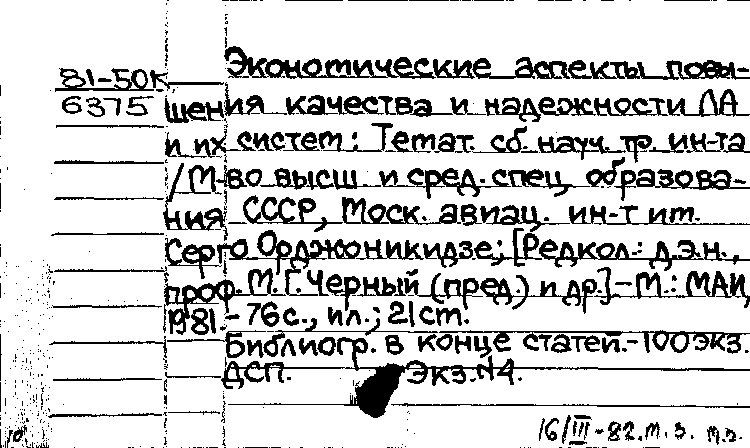 81-50К
6375
Экономические аспекты повы-
шения качества и надежности ЛА
и их систем: Темат. сб. науч. тр. ин-та
/М-во высш. и сред. спец. образова-
ния СССР, Моск. авиац. ин-т им.
Серго Орджоникидзе; [Редкол.: д.э.н.,
проф. М.Г. Черный (пред.) и др.].-М.: МАИ,
1981.-76с., ил.; 21см.
Библиогр. в конце статей.-100экз.
ДСП. Экз.№4.
16/III-82.м.з. м.з.